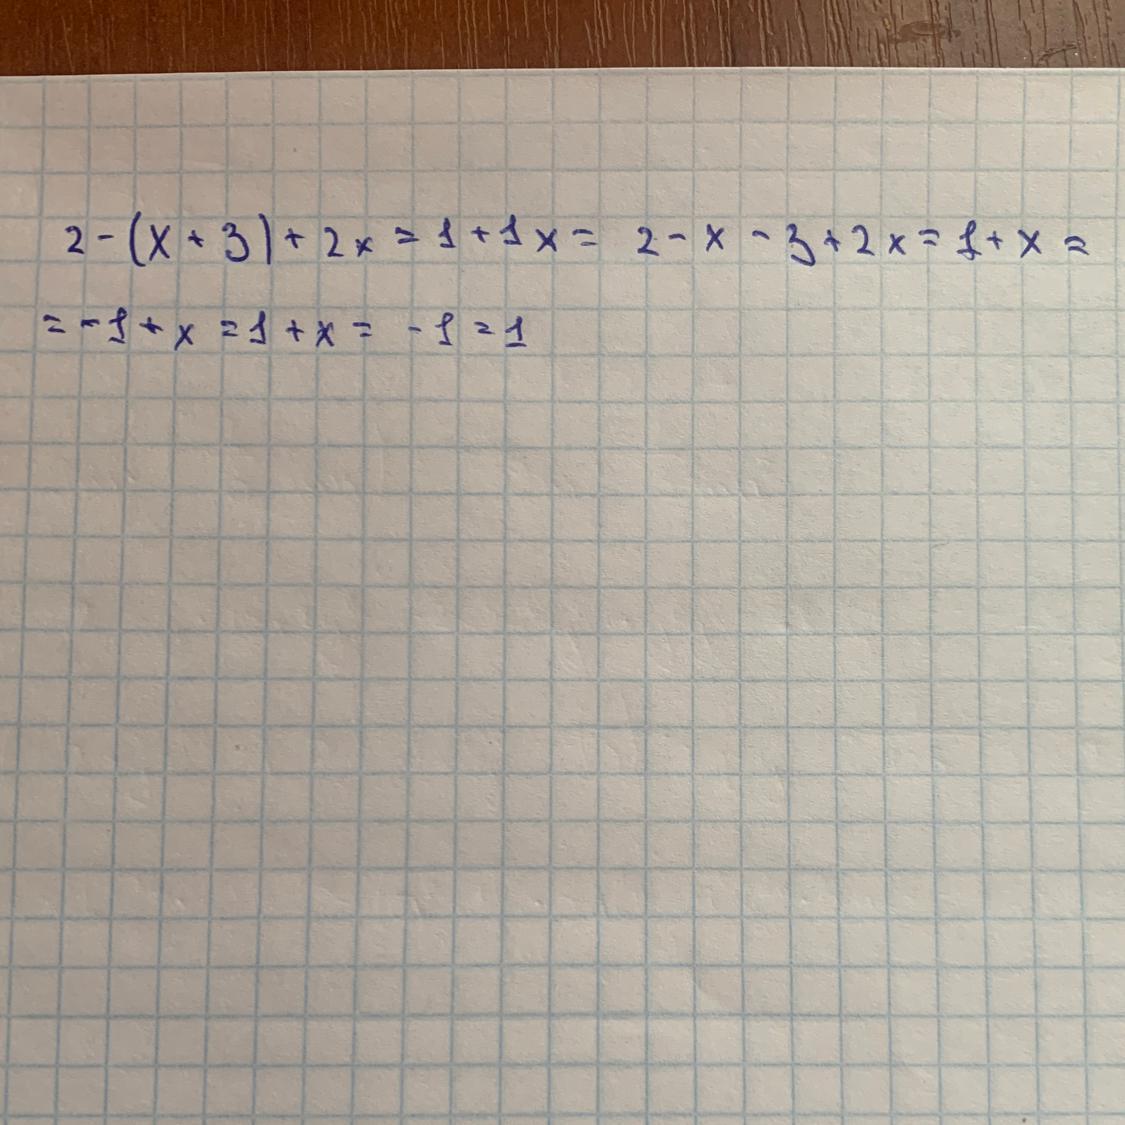 2-(x+3)+2x=1+1x= 2-x-3+2x=1+x=
=-1+x=1+x= -1=1